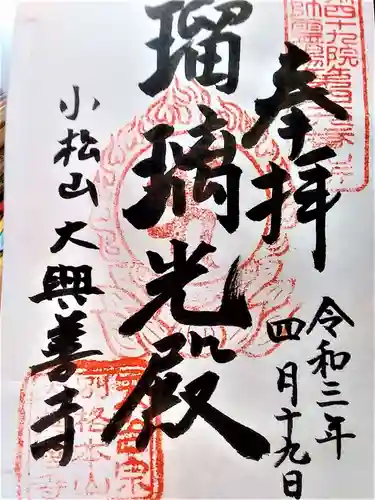 奉拝
令和三年
四月十九日
瑠璃光殿
小松山大興善寺
別格本山